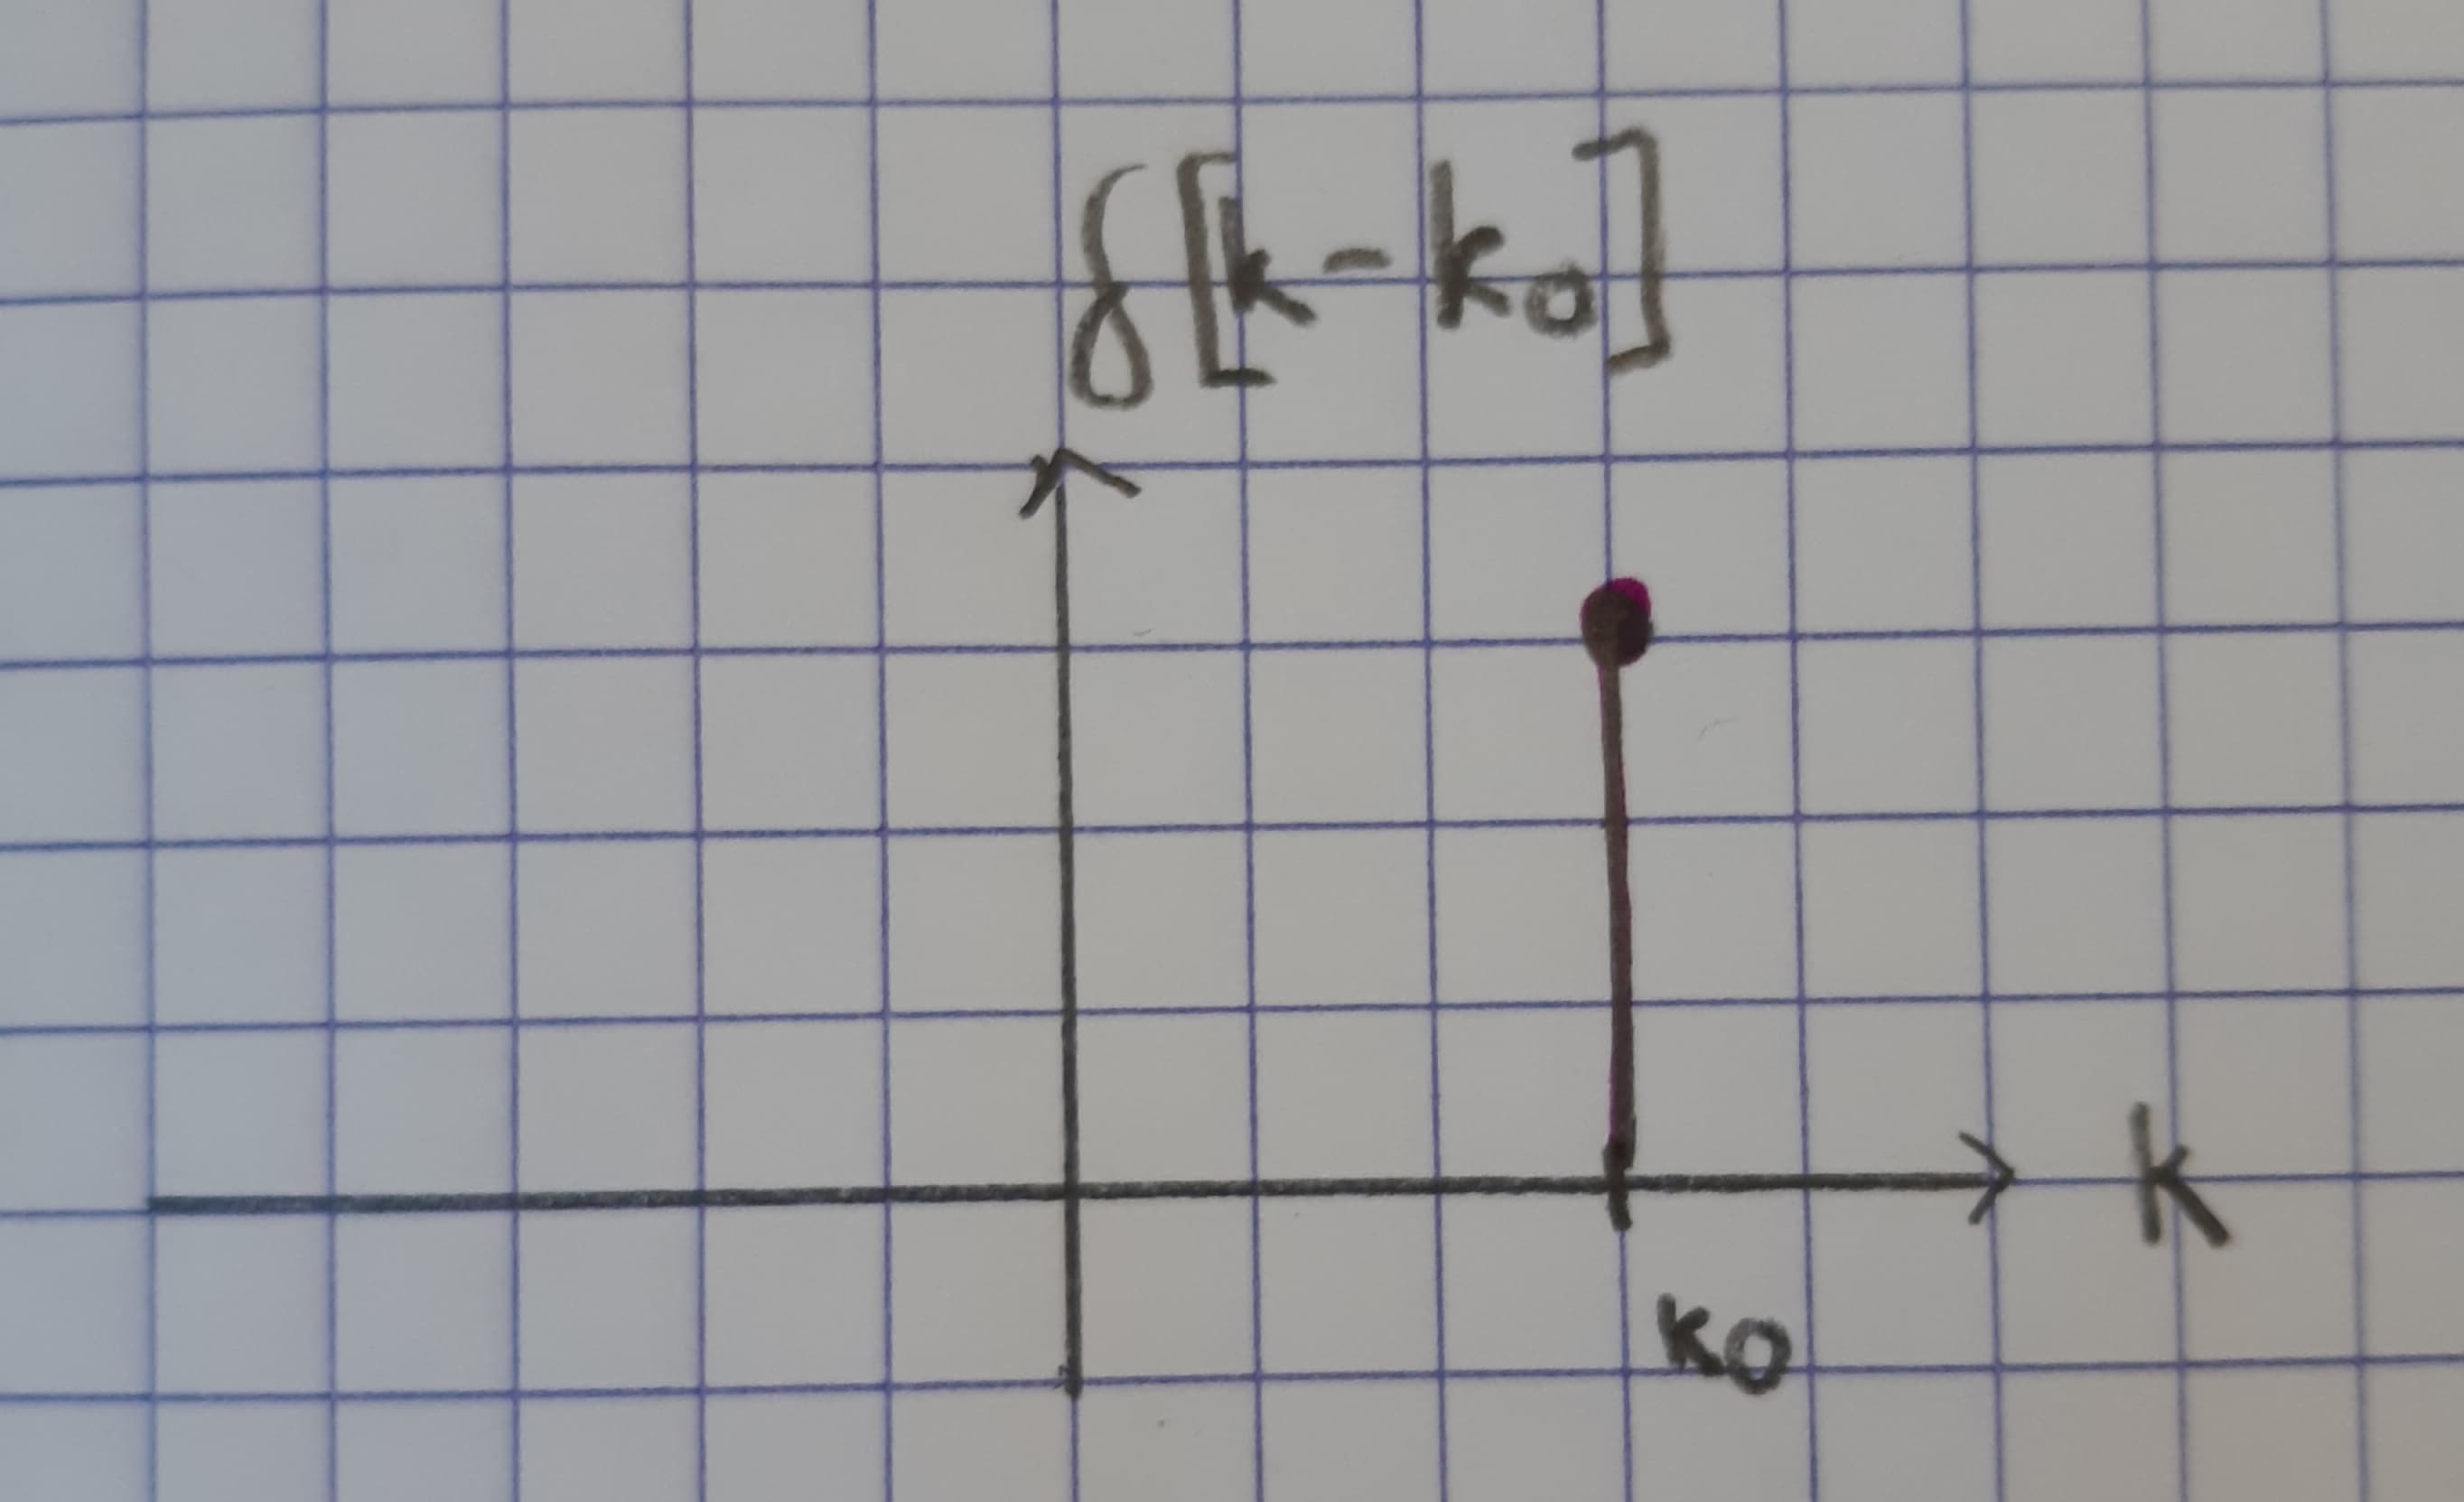 δ[k-k₀]
k
k₀